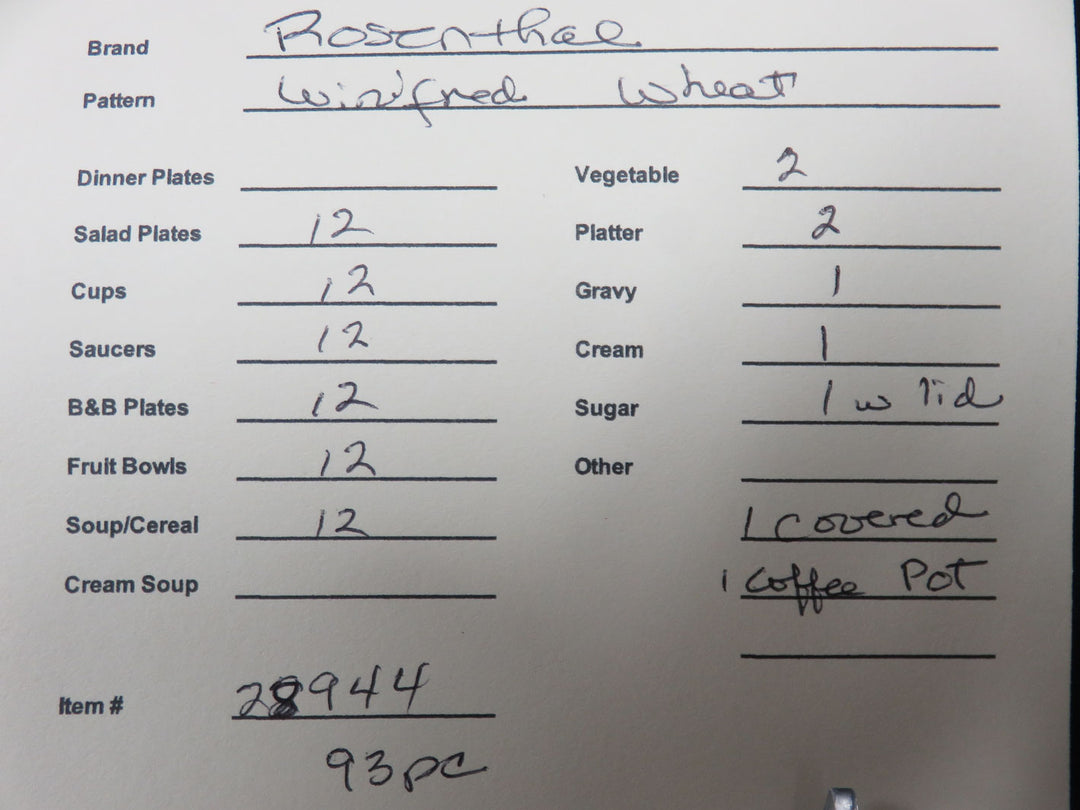 Brand Rosenthal
Pattern Winifred Wheat
Dinner Plates
Vegetable 2
Salad Plates 12
Platter 2
Cups 12
Gravy 1
Saucers 12
Cream 1
B&B Plates 12
Sugar 1 w lid
Fruit Bowls 12
Other
Soup/Cereal 12
1 covered
Cream Soup
1 Coffee Pot
Item # 28944
93pc